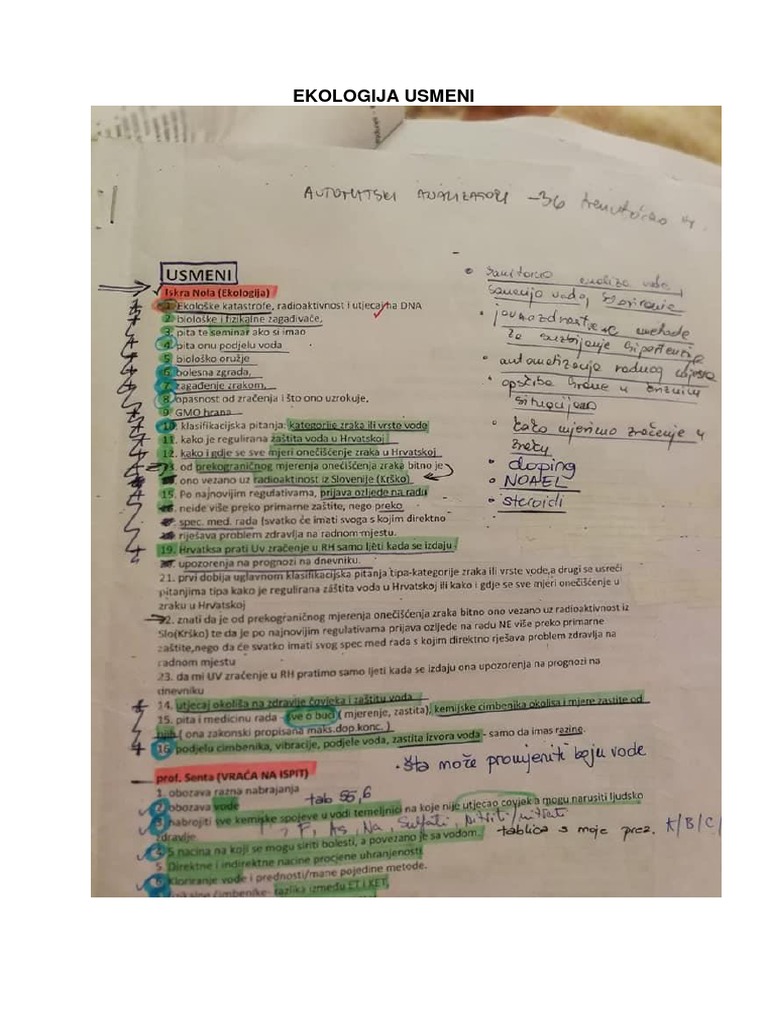 EKOLOGIJA USMENI
AUTOMATSKI ANALIZATORI - 36
USMENI
Iskra Nola (Ekologija)
1. Ekološke katastrofe, radioaktivnost i utjecaj na DNA
2. biološke i fizikalne zagađivače,
3. pita te seminar ako si imao
4. pita onu podjelu voda
5. biološko oružje
6. bolesna zgrada,
7. zagađenje zrakom,
8. opasnost od zračenja i što ono uzrokuje,
9. GMO hrana
10. klasifikacijska pitanja: kategorije zraka ili vrste vode
11. kako je regulirana zaštita voda u Hrvatskoj
12. kako i gdje se sve mjeri onečišćenje zraka u Hrvatskoj
13. od prekograničnog mjerenja onečišćenja zraka bitno je
ono vezano uz radioaktinost iz Slovenije (Krško)
15. Po najnovijim regulativama, prijava ozljede na radu
neide više preko primarne zaštite, nego preko
spec. med. rada (svatko će imati svoga s kojim direktno
riješava problem zdravlja na radnom mjestu.
19. Hrvatksa prati Uv zračenje u RH samo ljeti kada se izdaju
upozorenja na prognozi na dnevniku.
21. prvi dobija uglavnom klasifikacijska pitanja tipa-kategorije zraka ili vrste vode,a drugi se usreći
pitanjima tipa kako je regulirana zaštita voda u Hrvatskoj ili kako i gdje se sve mjeri onečišćenje u
zraku u Hrvatskoj
22. znati da je od prekograničnog mjerenja onečišćenja zraka bitno ono vezano uz radioaktivnost iz
Slo(Krško) te da je po najnovijim regulativama prijava ozljede na radu NE više preko primarne
zaštite,nego da će svatko imati svog spec med rada s kojim direktno rješava problem zdravlja na
radnom mjestu
23. da mi UV zračenje u RH pratimo samo ljeti kada se izdaju ona upozorenja na prognozi na
dnevniku
14. utjecaj okoliša na zdravlje čovjeka i zaštitu voda
15. pita i medicinu rada - sve o buci ( mjerenje, zastita), kemijske cimbenika okolisa i mjere zastite od
njih ( ona zakonski propisana maks.dop.konc. )
16. podjelu cimbenika, vibracije, podjele voda, zastita izvora voda - samo da imas razine.
sanitarna analiza vode,
javnozdravstvene metode
za suzbijanje hipertenzije
automatizacija radnog mjesta
opskrba hrane u kriznim
situacijama
kako mjerimo zračenje u
zraku
doping
NOAEL
steroidi
• šta može promijeniti boju vode
prof. Senta (VRAĆA NA ISPIT)
1. obozava razna nabrajanja
tab 55,6
2. obozava vode
3. nabrojiti sve kemijske spojeve u vodi temeljnici na koje nije utjecao covjek a mogu narusiti ljudsko
zdravlje
F, As, Na, Sulfati, Nitriti/nitrati
tablica s moje prez. K/B/C/
4. 5 nacina na koji se mogu siriti bolesti, a povezano je sa vodom.
5. Direktne i indirektne nacine procjene uhranjenosti
6. Kloriranje vode i prednosti/mane pojedine metode.
fizikalne čimbenike- razlika između ET I KET,